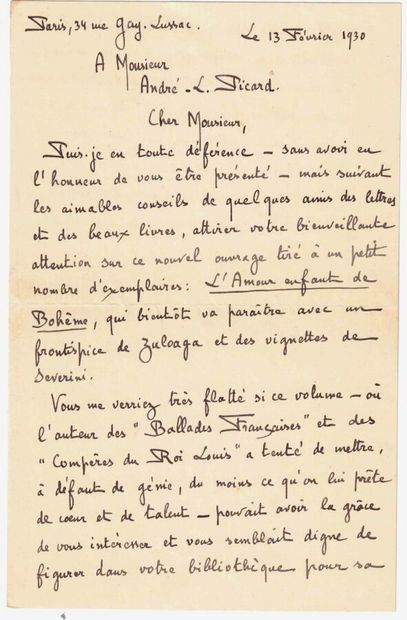 Paris, 34 rue Gay-Lussac.
Le 13 Février 1930
A Monsieur
André-L. Picard.
Cher Monsieur,
Puis-je en toute déférence – sans avoir eu
l'honneur de vous être présenté – mais suivant
les aimables conseils de quelques amis des lettres
et des beaux livres, attirer votre bienveillante
attention sur ce nouvel ouvrage tiré à un petit
nombre d'exemplaires : L'Amour enfant de
Bohême, qui bientôt va paraître avec un
frontispice de Zuloaga et des vignettes de
Severini.
Vous me verriez très flatté si ce volume – où
l'auteur des "Ballades Françaises" et des
"Compères du Roi Louis" a tenté de mettre,
à défaut de génie, du moins ce qu'on lui prête
de cœur et de talent – pouvait avoir la grâce
de vous intéresser et vous semblait digne de
figurer dans votre bibliothèque pour sa